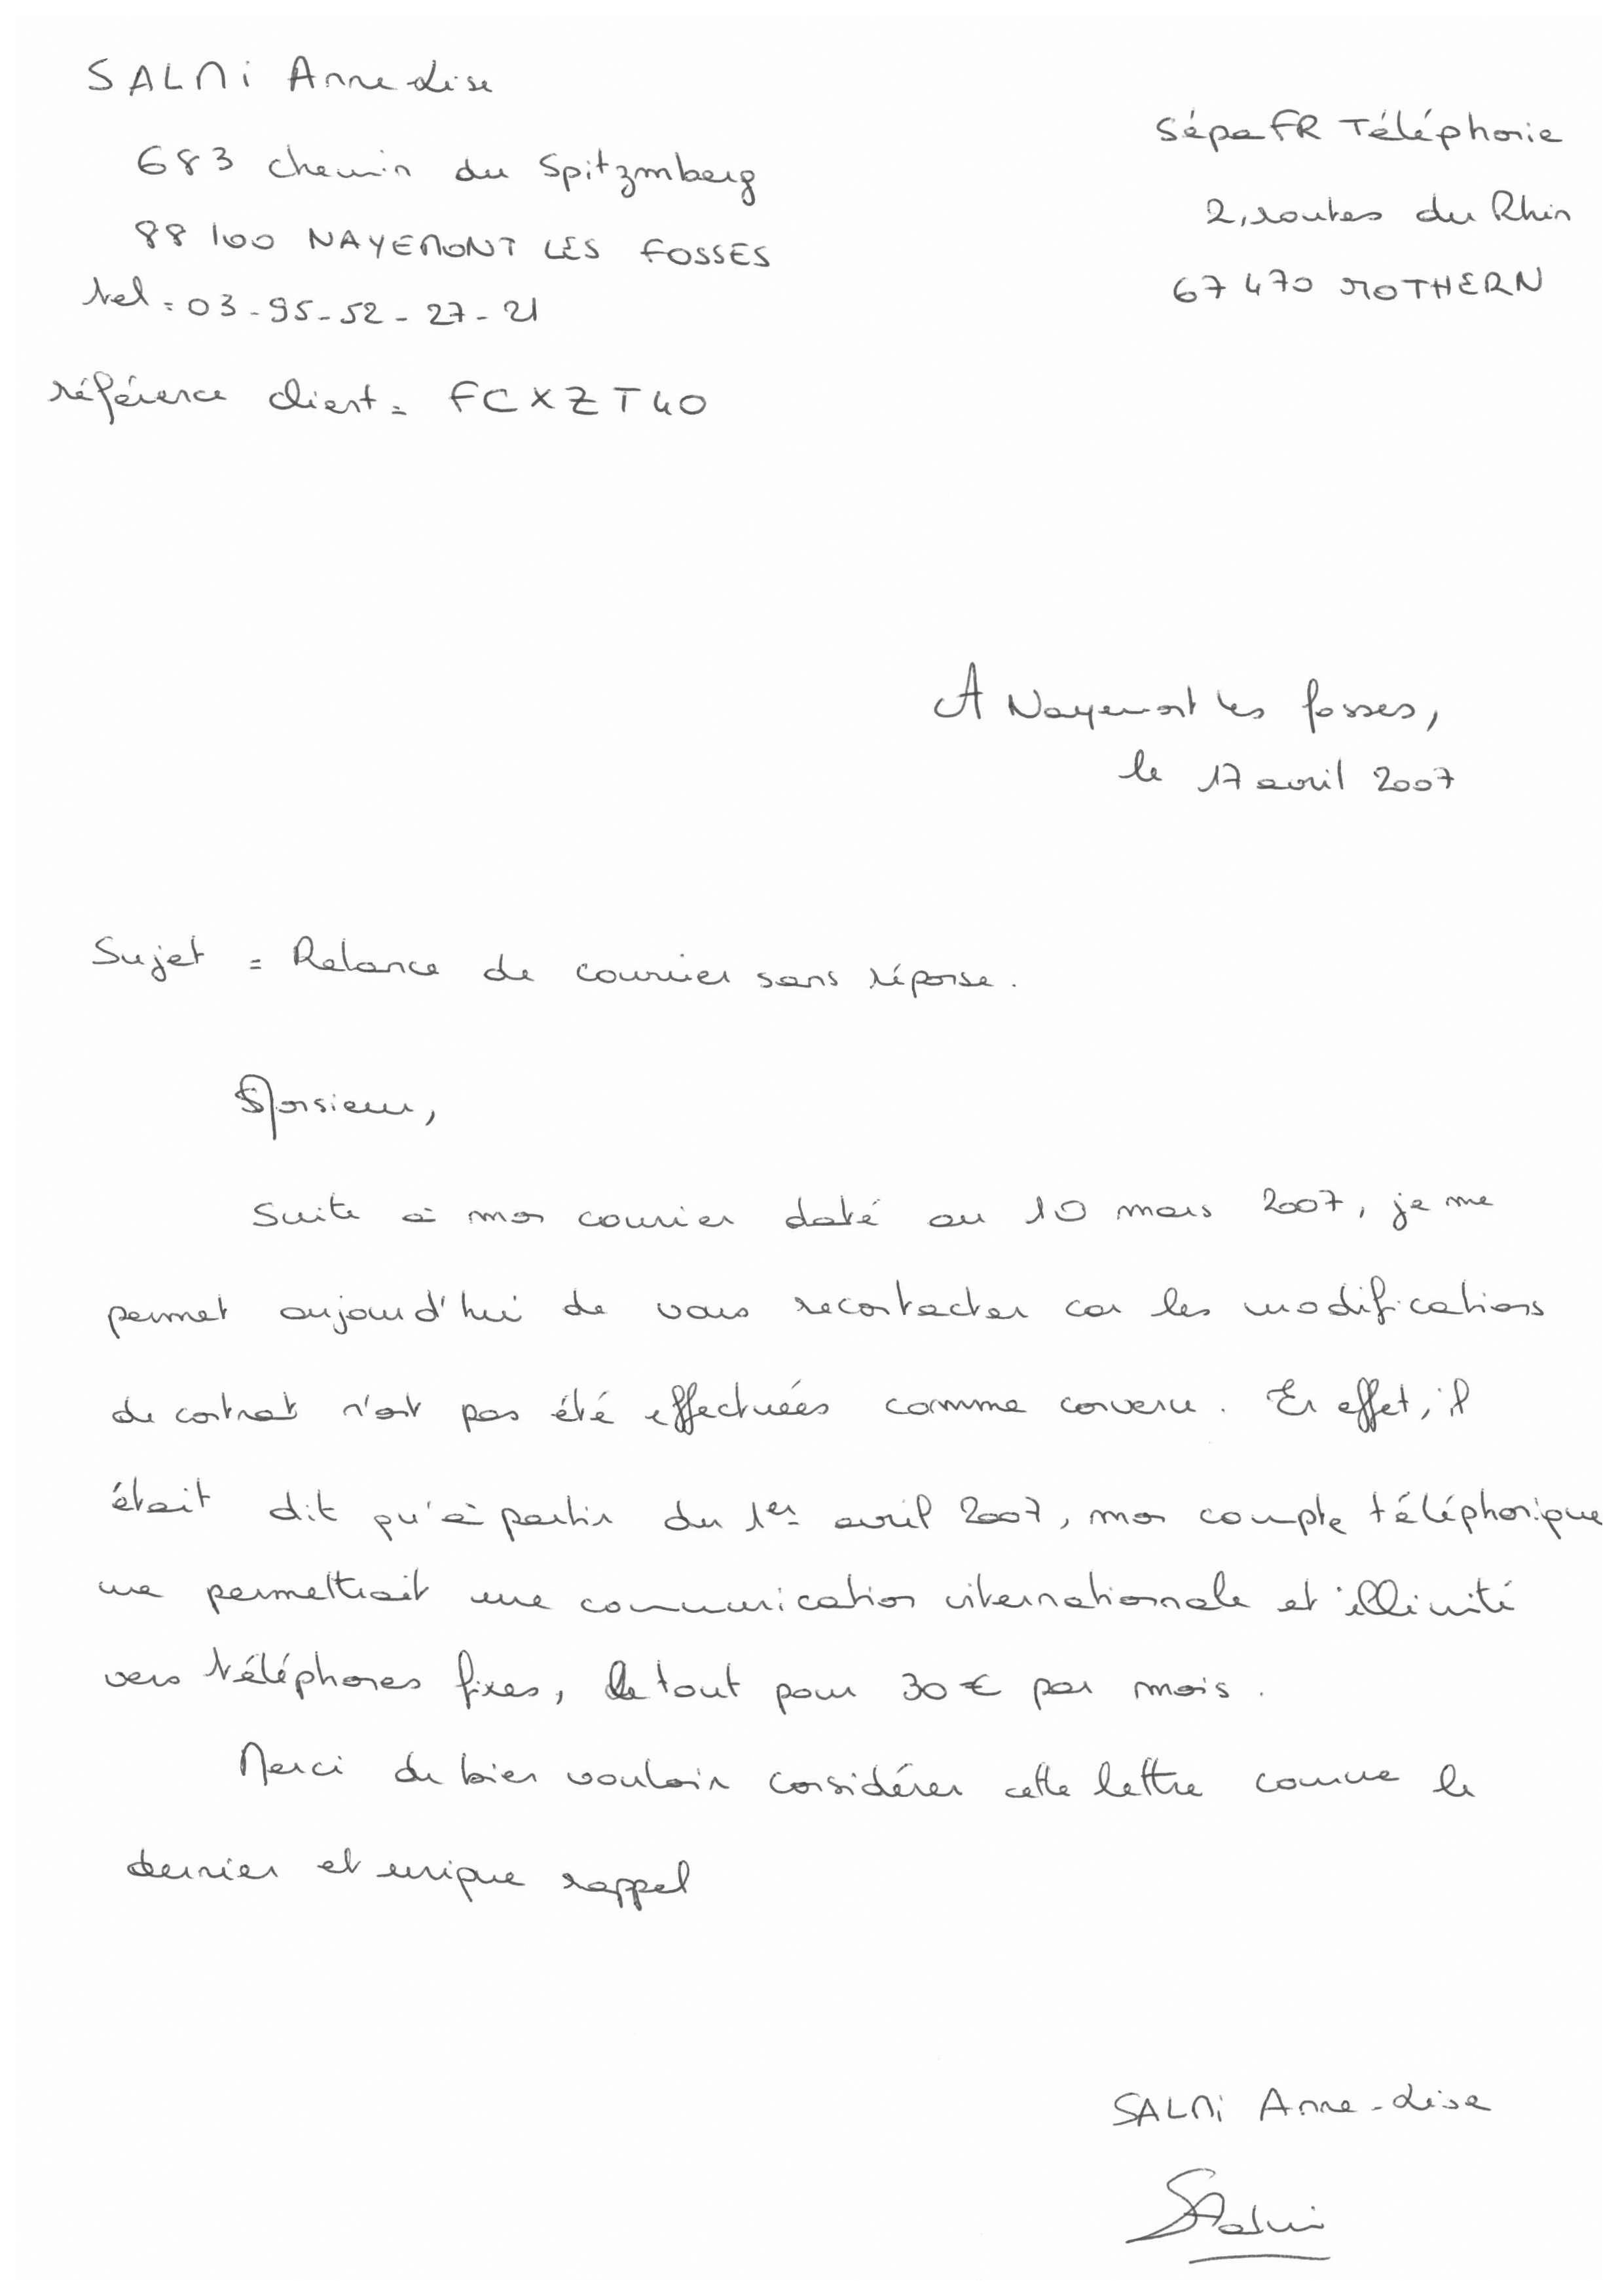 SALMi Anne-Lise
683 chemin du Spitzmberg
88 100 NAYEMONT LES FOSSES
tel = 03-95-52-27-21
référence client = FCXZT40
SépaFR Téléphonie
2, routes du Rhin
67 470 MOTHERN
A Nayemont les fosses,
le 17 avril 2007
Sujet = Relance de courrier sans réponse.
Monsieur,
Suite à mon courrier daté au 10 mars 2007, je me
permet aujourd'hui de vous recontacter car les modifications
de contrat n'ont pas été effectuées comme convenu. En effet, il
était dit qu'à partir du 1er avril 2007, mon compte téléphonique
me permettrait une communication internationale et illimité
vers téléphones fixes, le tout pour 30€ par mois.
Merci de bien vouloir considérer cette lettre comme le
dernier et unique rappel
SALMi Anne-Lise
Salmi